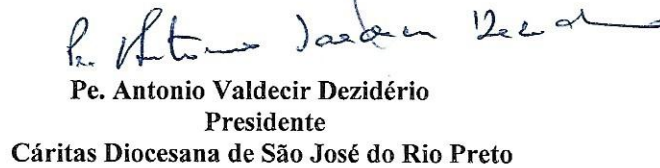 Pe. Antonio Valdecir Dezidério
Pe. Antonio Valdecir Dezidério
Presidente
Cáritas Diocesana de São José do Rio Preto